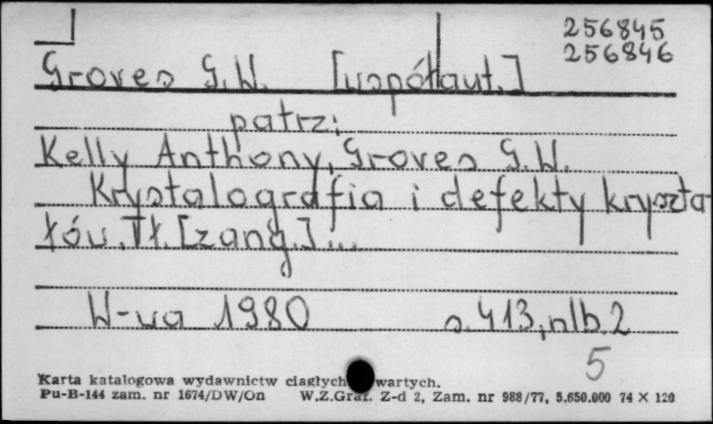 256845
256846
Groves G.W. [współaut.]
patrz:
Kelly Anthony, Groves G.W.
Krystalografia i defekty kryszta-
łów. Tł. [z ang.] ...
W-wa 1980 s. 413, nlb. 2
5
Karta katalogowa wydawnictw ciągłych wartych.
Pu-B-144 zam. nr 1674/DW/On W.Z.Graf. Z-d 2, Zam. nr 988/77, 5.650.000 74 X 120